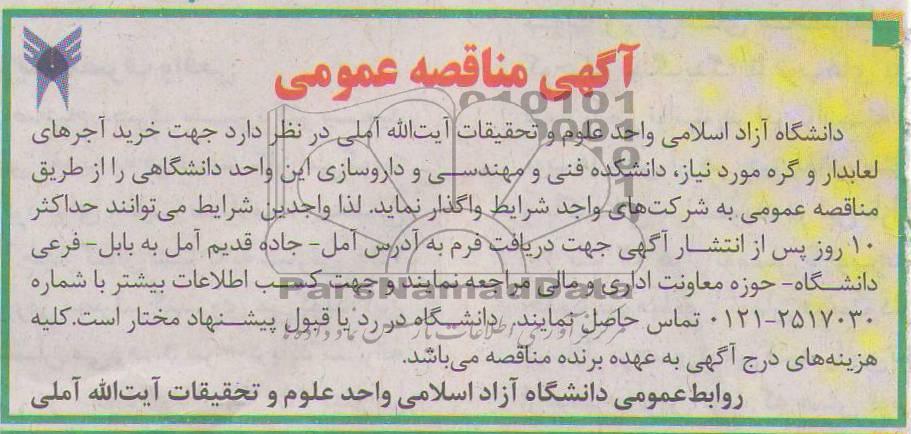 آگهی مناقصه عمومی
دانشگاه آزاد اسلامی واحد علوم و تحقیقات آیت‌الله آملی در نظر دارد جهت خرید آجرهای
لعابدار و گره مورد نیاز، دانشکده فنی و مهندسـی و داروسازی این واحد دانشگاهی را از طریق
مناقصه عمومی به شرکت‌های واجد شرایط واگذار نماید. لذا واجدین شرایط می‌توانند حداکثر
۱۰ روز پس از انتشـار آگهی جهت دریافت فرم به آدرس آمل- جاده قدیم آمل به بابل- فرعی
دانشـگاه- حوزه معاونت اداری و مالی مراجعه نمایند و جهت کسـب اطلاعات بیشتر با شماره
۰۱۲۱-۲۵۱۷۰۳۰ تماس حاصل نمایند. دانشـگاه در رد یا قبول پیشـنهاد مختار است.کلیه
هزینه‌های درج آگهی به عهده برنده مناقصه می‌باشد.
روابط‌عمومی دانشگاه آزاد اسلامی واحد علوم و تحقیقات آیت‌الله آملی
ParsNamadData